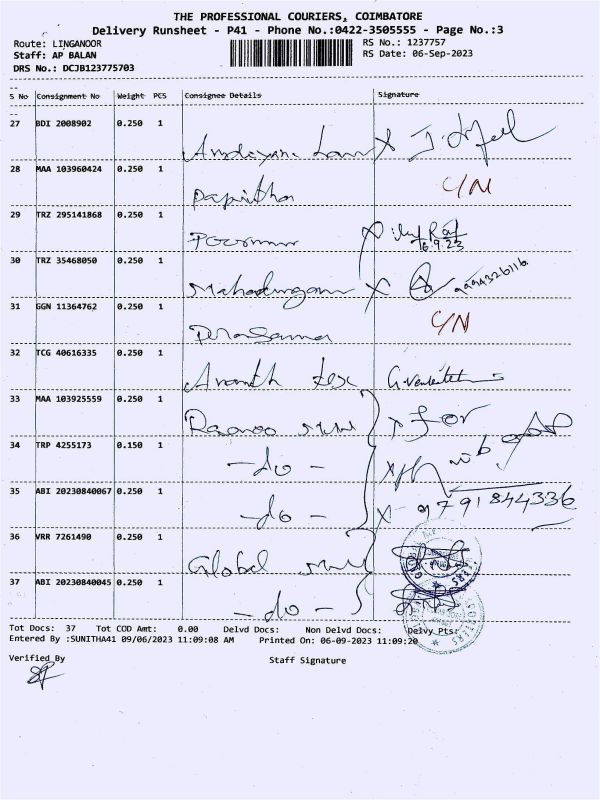 THE PROFESSIONAL COURIERS, COIMBATORE
Delivery Runsheet - P41 - Phone No.:0422-3505555 - Page No.:3
Route: LINGANOOR
RS No.: 1237757
Staff: AP BALAN
RS Date: 06-Sep-2023
DRS No.: DCJB123775703
S No Consignment No Weight PCS Consignee Details Signature
27 BDI 2008902 0.250 1
28 MAA 103960424 0.250 1 C/N
29 TRZ 295141868 0.250 1
30 TRZ 35468050 0.250 1
31 GGN 11364762 0.250 1 C/N
32 TCG 40616335 0.250 1 Ananth tex
33 MAA 103925559 0.250 1 for
34 TRP 4255173 0.150 1 -do-
35 ABI 20230840067 0.250 1 -do- 9791844336
36 VRR 7261490 0.250 1 Global
37 ABI 20230840045 0.250 1 -do-
Tot Docs: 37 Tot COD Amt: 0.00 Delvd Docs: Non Delvd Docs: Delvy Pts:
Entered By :SUNITHA41 09/06/2023 11:09:08 AM Printed On: 06-09-2023 11:09:20
Verified By
Staff Signature